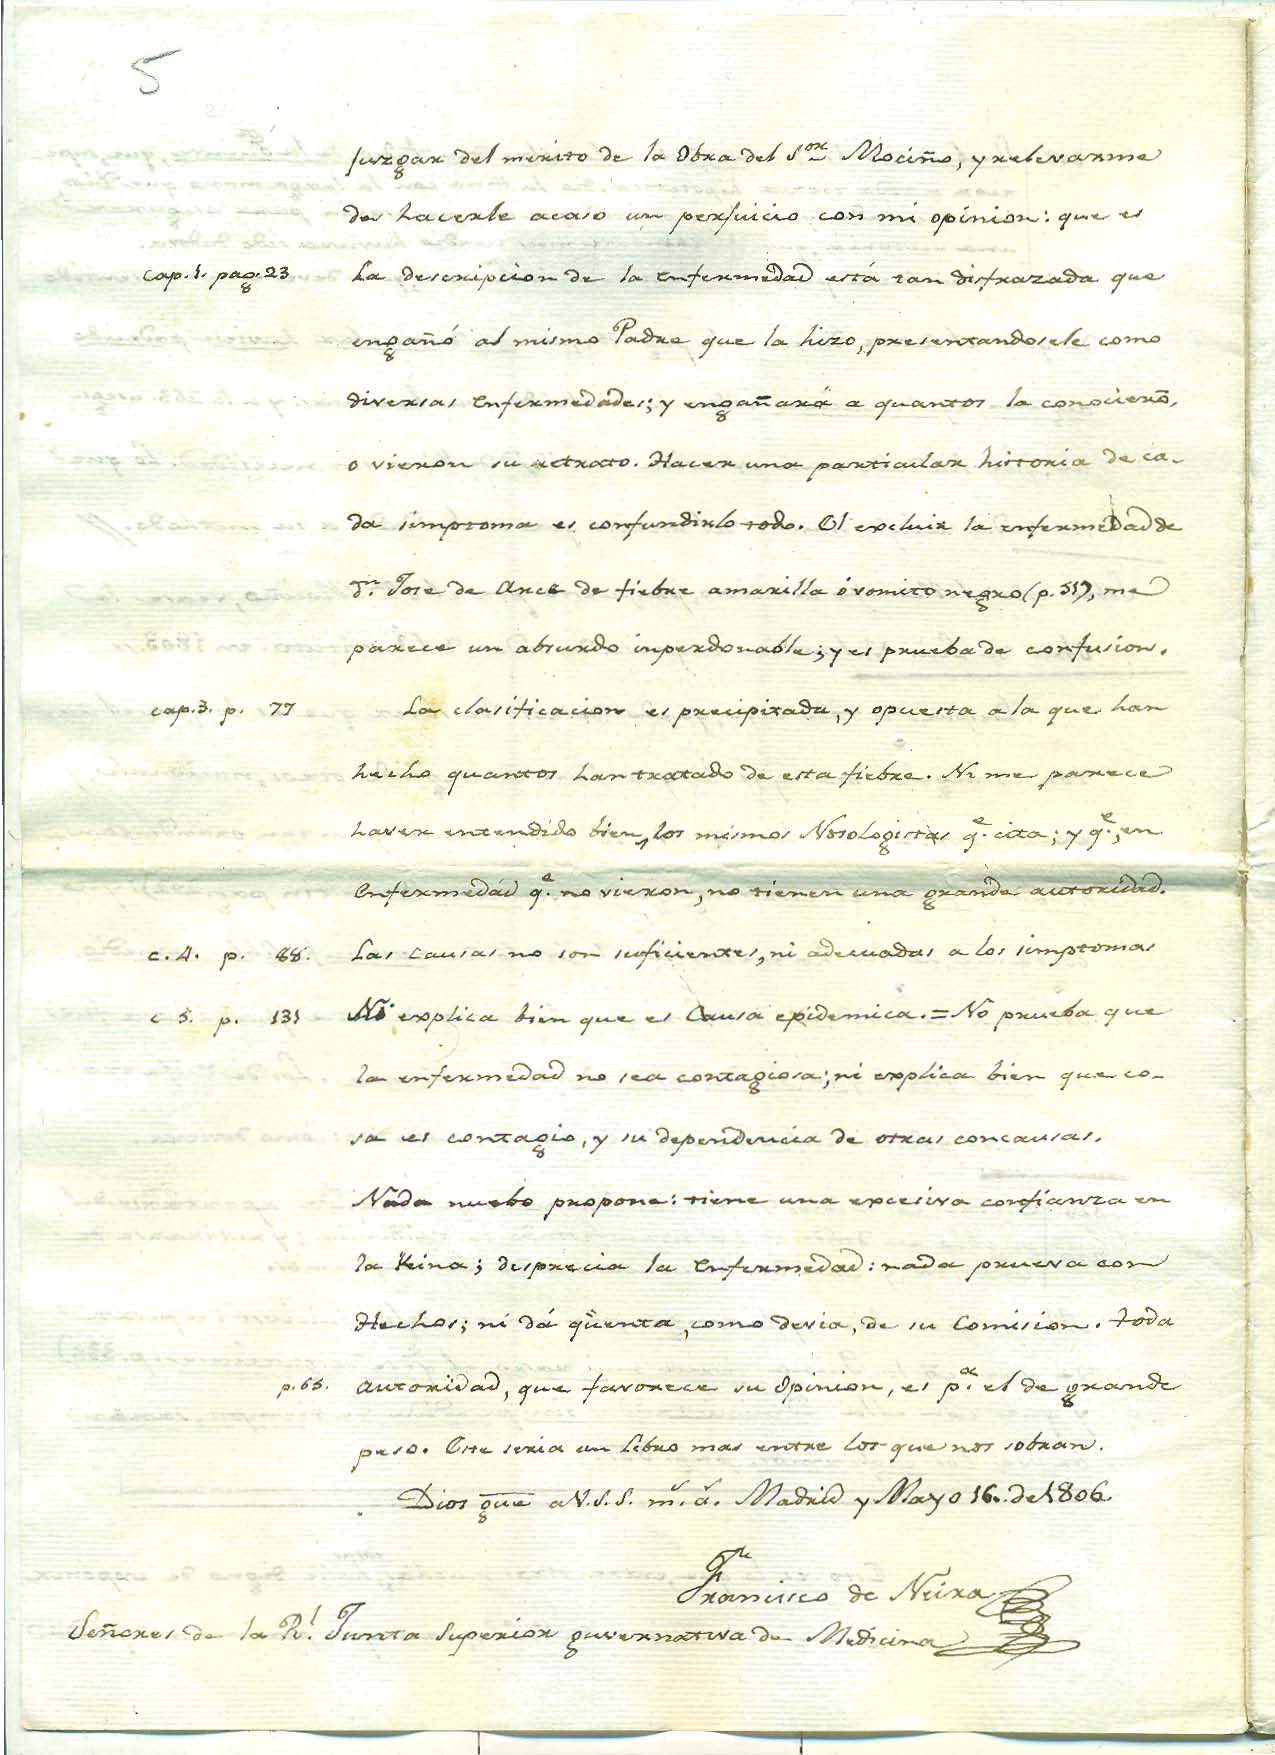 5
juzgar del merito de la Obra del S.or Mociño, y relevarme
de hacerle acaso un perjuicio con mi opinion: que es
cap. 1. pag. 23 La descripcion de la enfermedad está tan disfrazada que
engañó al mismo Padre que la hizo, presentandosele como
diversas Enfermedades; y engañará a quantos la conocierõ,
o vieron su retrato. Hacer una particular historia de ca-
da simptoma es confundirlo todo. El excluir la enfermedad de
Dn. Jose de Arce de fiebre amarilla ó vomito negro (p. 51), me
parece un absurdo inperdonable; y es prueba de confusion.
cap. 3. p. 77 La clasificacion es precipitada, y opuesta a la que han
hecho quantos han tratado de esta fiebre. Ni me parece
haver entendido bien, los mismos Nosologistas q.e cita; y q.e, en
Enfermedad q.e no vieron, no tienen una grande autoridad.
c. 4. p. 88. Las causas no son suficientes, ni adecuadas a los simptomas
c 5. p. 131 Ni explica bien que es Causa epidemica. = No prueba que
la enfermedad no sea contagiosa; ni explica bien que co-
sa es contagio, y su dependencia de otras concausas.
Nada nuebo propone: tiene una excesiva confianza en
la Kina; desprecia la Enfermedad: nada prueva con
Hechos; ni dá qüenta, como devia, de su Comision. toda
p. 65. autoridad, que favorece su Opinion, es p.a el de grande
peso. Este seria un Lebro mas entre los que nos sobran.
Dios gue a V.S.S. m.s a.s Madrid y Mayo 16. de 1806.
Francisco de Neira
Señores de la R.l Junta Superior guvernativa de Medicina